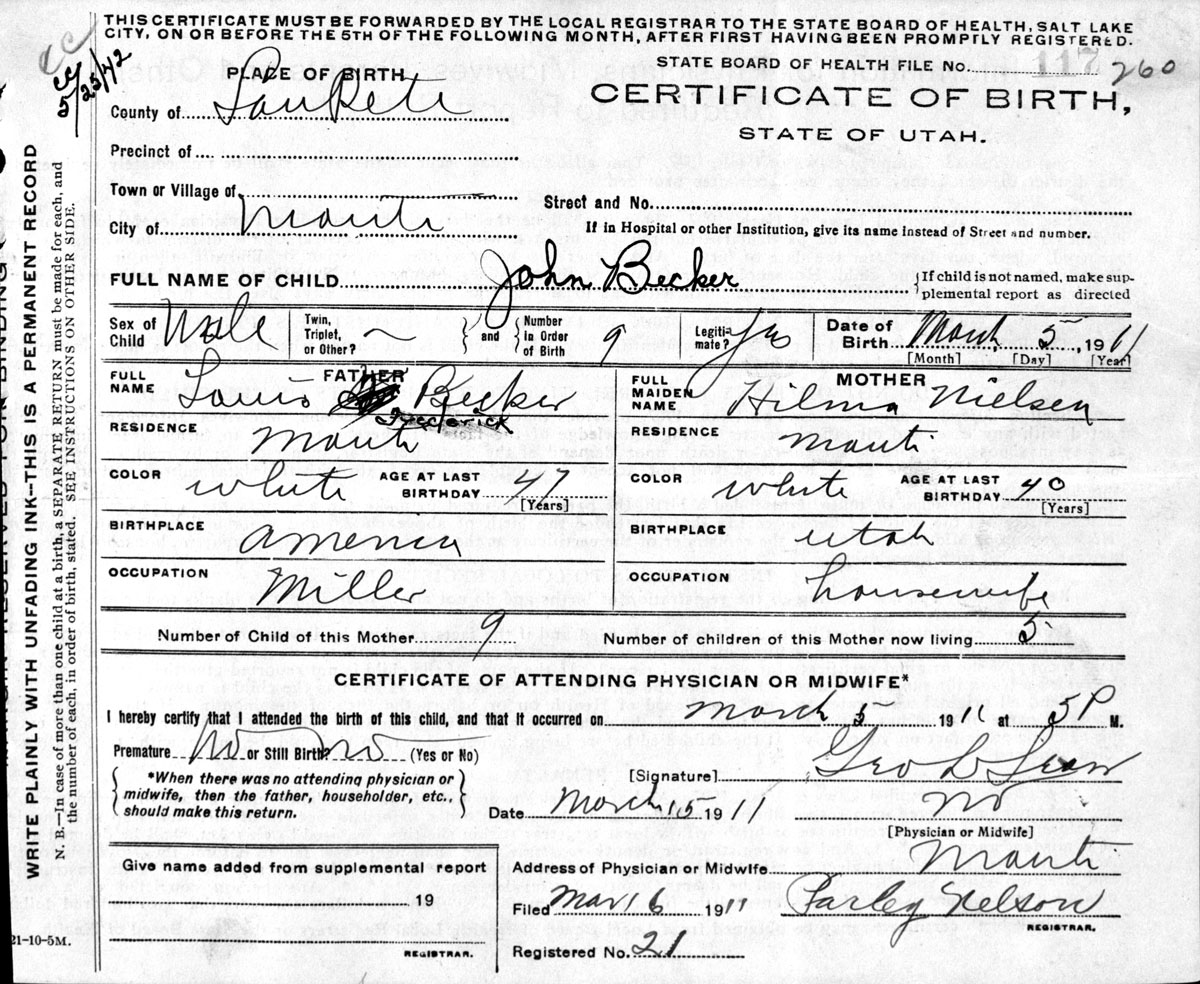 THIS CERTIFICATE MUST BE FORWARDED BY THE LOCAL REGISTRAR TO THE STATE BOARD OF HEALTH, SALT LAKE
CITY, ON OR BEFORE THE 5TH OF THE FOLLOWING MONTH, AFTER FIRST HAVING BEEN PROMPTLY REGISTERED.
5/25/42
STATE BOARD OF HEALTH FILE No. 117 260
PLACE OF BIRTH
CERTIFICATE OF BIRTH,
STATE OF UTAH.
County of SanPete
Precinct of
Town or Village of
Street and No.
City of Manti
If in Hospital or other Institution, give its name instead of Street and number.
FULL NAME OF CHILD John Becker {If child is not named, make supplemental report as directed
Sex of Child Male Twin, Triplet, or Other? – } and { Number In Order of Birth 9 Legitimate? Yes Date of Birth March 5, 1911
[Month] [Day] [Year]
FATHER MOTHER
FULL NAME Louis Becker FULL MAIDEN NAME Hilma Nielsen
Frederick
RESIDENCE Manti RESIDENCE Manti
COLOR White AGE AT LAST BIRTHDAY 47 [Years] COLOR White AGE AT LAST BIRTHDAY 40 [Years]
BIRTHPLACE America BIRTHPLACE Utah
OCCUPATION Miller OCCUPATION housewife
Number of Child of this Mother 9 Number of children of this Mother now living 5
CERTIFICATE OF ATTENDING PHYSICIAN OR MIDWIFE*
I hereby certify that I attended the birth of this child, and that it occurred on March 5 1911 at 5 P M.
Premature No or Still Birth? No (Yes or No)
{*When there was no attending physician or midwife, then the father, householder, etc., should make this return.}
[Signature] Geo L
Date March 15 1911
[Physician or Midwife]
Give name added from supplemental report
Address of Physician or Midwife Manti
19
Filed Mar 16 1911 Parley Nelson
REGISTRAR.
REGISTRAR.
Registered No. 21
21-10-5M.
WRITE PLAINLY WITH UNFADING INK—THIS IS A PERMANENT RECORD
N. B.—In case of more than one child at a birth, a SEPARATE RETURN must be made for each, and
the number of each, in order of birth, stated. SEE INSTRUCTIONS ON OTHER SIDE.